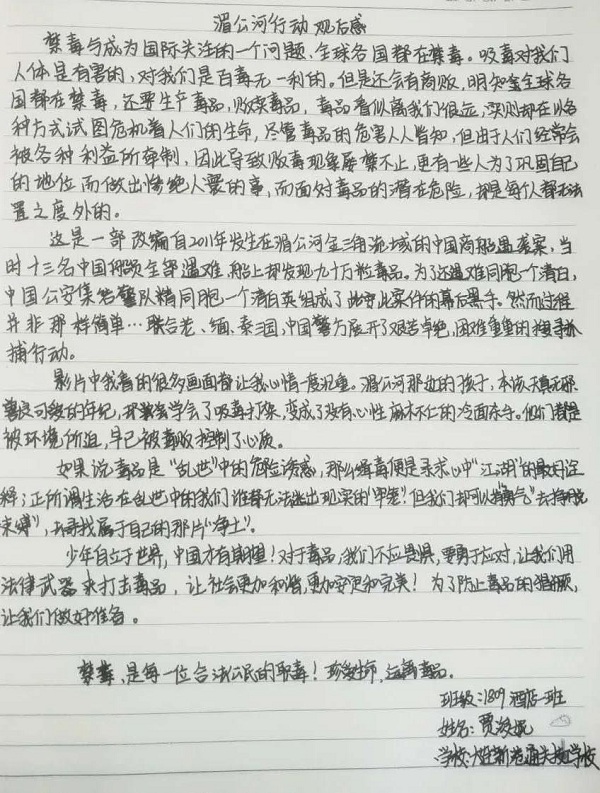 湄公河行动 观后感
禁毒与成为国际关注的一个问题、全球各国都在禁毒。吸毒对我们
人体是有害的,对我们是百毒无一利的。但是还会有商贩,明知全球各
国都在禁毒,还要生产毒品,贩卖毒品,毒品看似离我们很远,实则却在以各
种方式试图危机着人们的生命,尽管毒品的危害人人皆知,但由于人们经常会
被各种利益所牵制,因此导致贩毒现象屡禁不止,更有一些人为了巩固自己
的地位而做出惨绝人寰的事,而面对毒品的潜在危险,却是每个人都无法
置之度外的。
这是一部改编自2011年发生在湄公河金三角流域的中国商船遇袭案,当
时十三名中国船员全部遇难,船上却发现九十万粒毒品。为了还遇难同胞一个清白,
中国公安集结警队精同胞一个清白英组成了 此案件的幕后黑手。然而过程
并非那样简单…联合老、缅、泰三国,中国警方展开了艰苦卓绝,困难重重的搜寻抓
捕行动。
影片中我看的很多画面都让我心情一度沉重。湄公河那边的孩子,本该天真无邪
善良可爱的年纪,却学会了吸毒打架,变成了没有心性麻木不仁的冷面杀手。他们都是
被环境所迫,早已被毒贩控制了心质。
如果说毒品是"乱世"中的危险诱惑,那么缉毒便是寻求心中"江湖"的最好诠
释;正所谓生活在乱世中的我们谁都无法逃出现实的"牢笼"但我们却可以有"勇气"去挣脱
束缚",去寻找属于自己的那片"净土"。
少年自立于世界,中国才有期望!对于毒品,我们不应畏惧,要勇于应对,让我们用
法律武器来打击毒品,让社会更加和谐,更加安定和完美!为了防止毒品的猖獗,
让我们做好准备。
禁毒,是每一位合法公民的职毒!珍爱生命,远离毒品。
班级:1809酒店一班
姓名:贾
学校: 学校